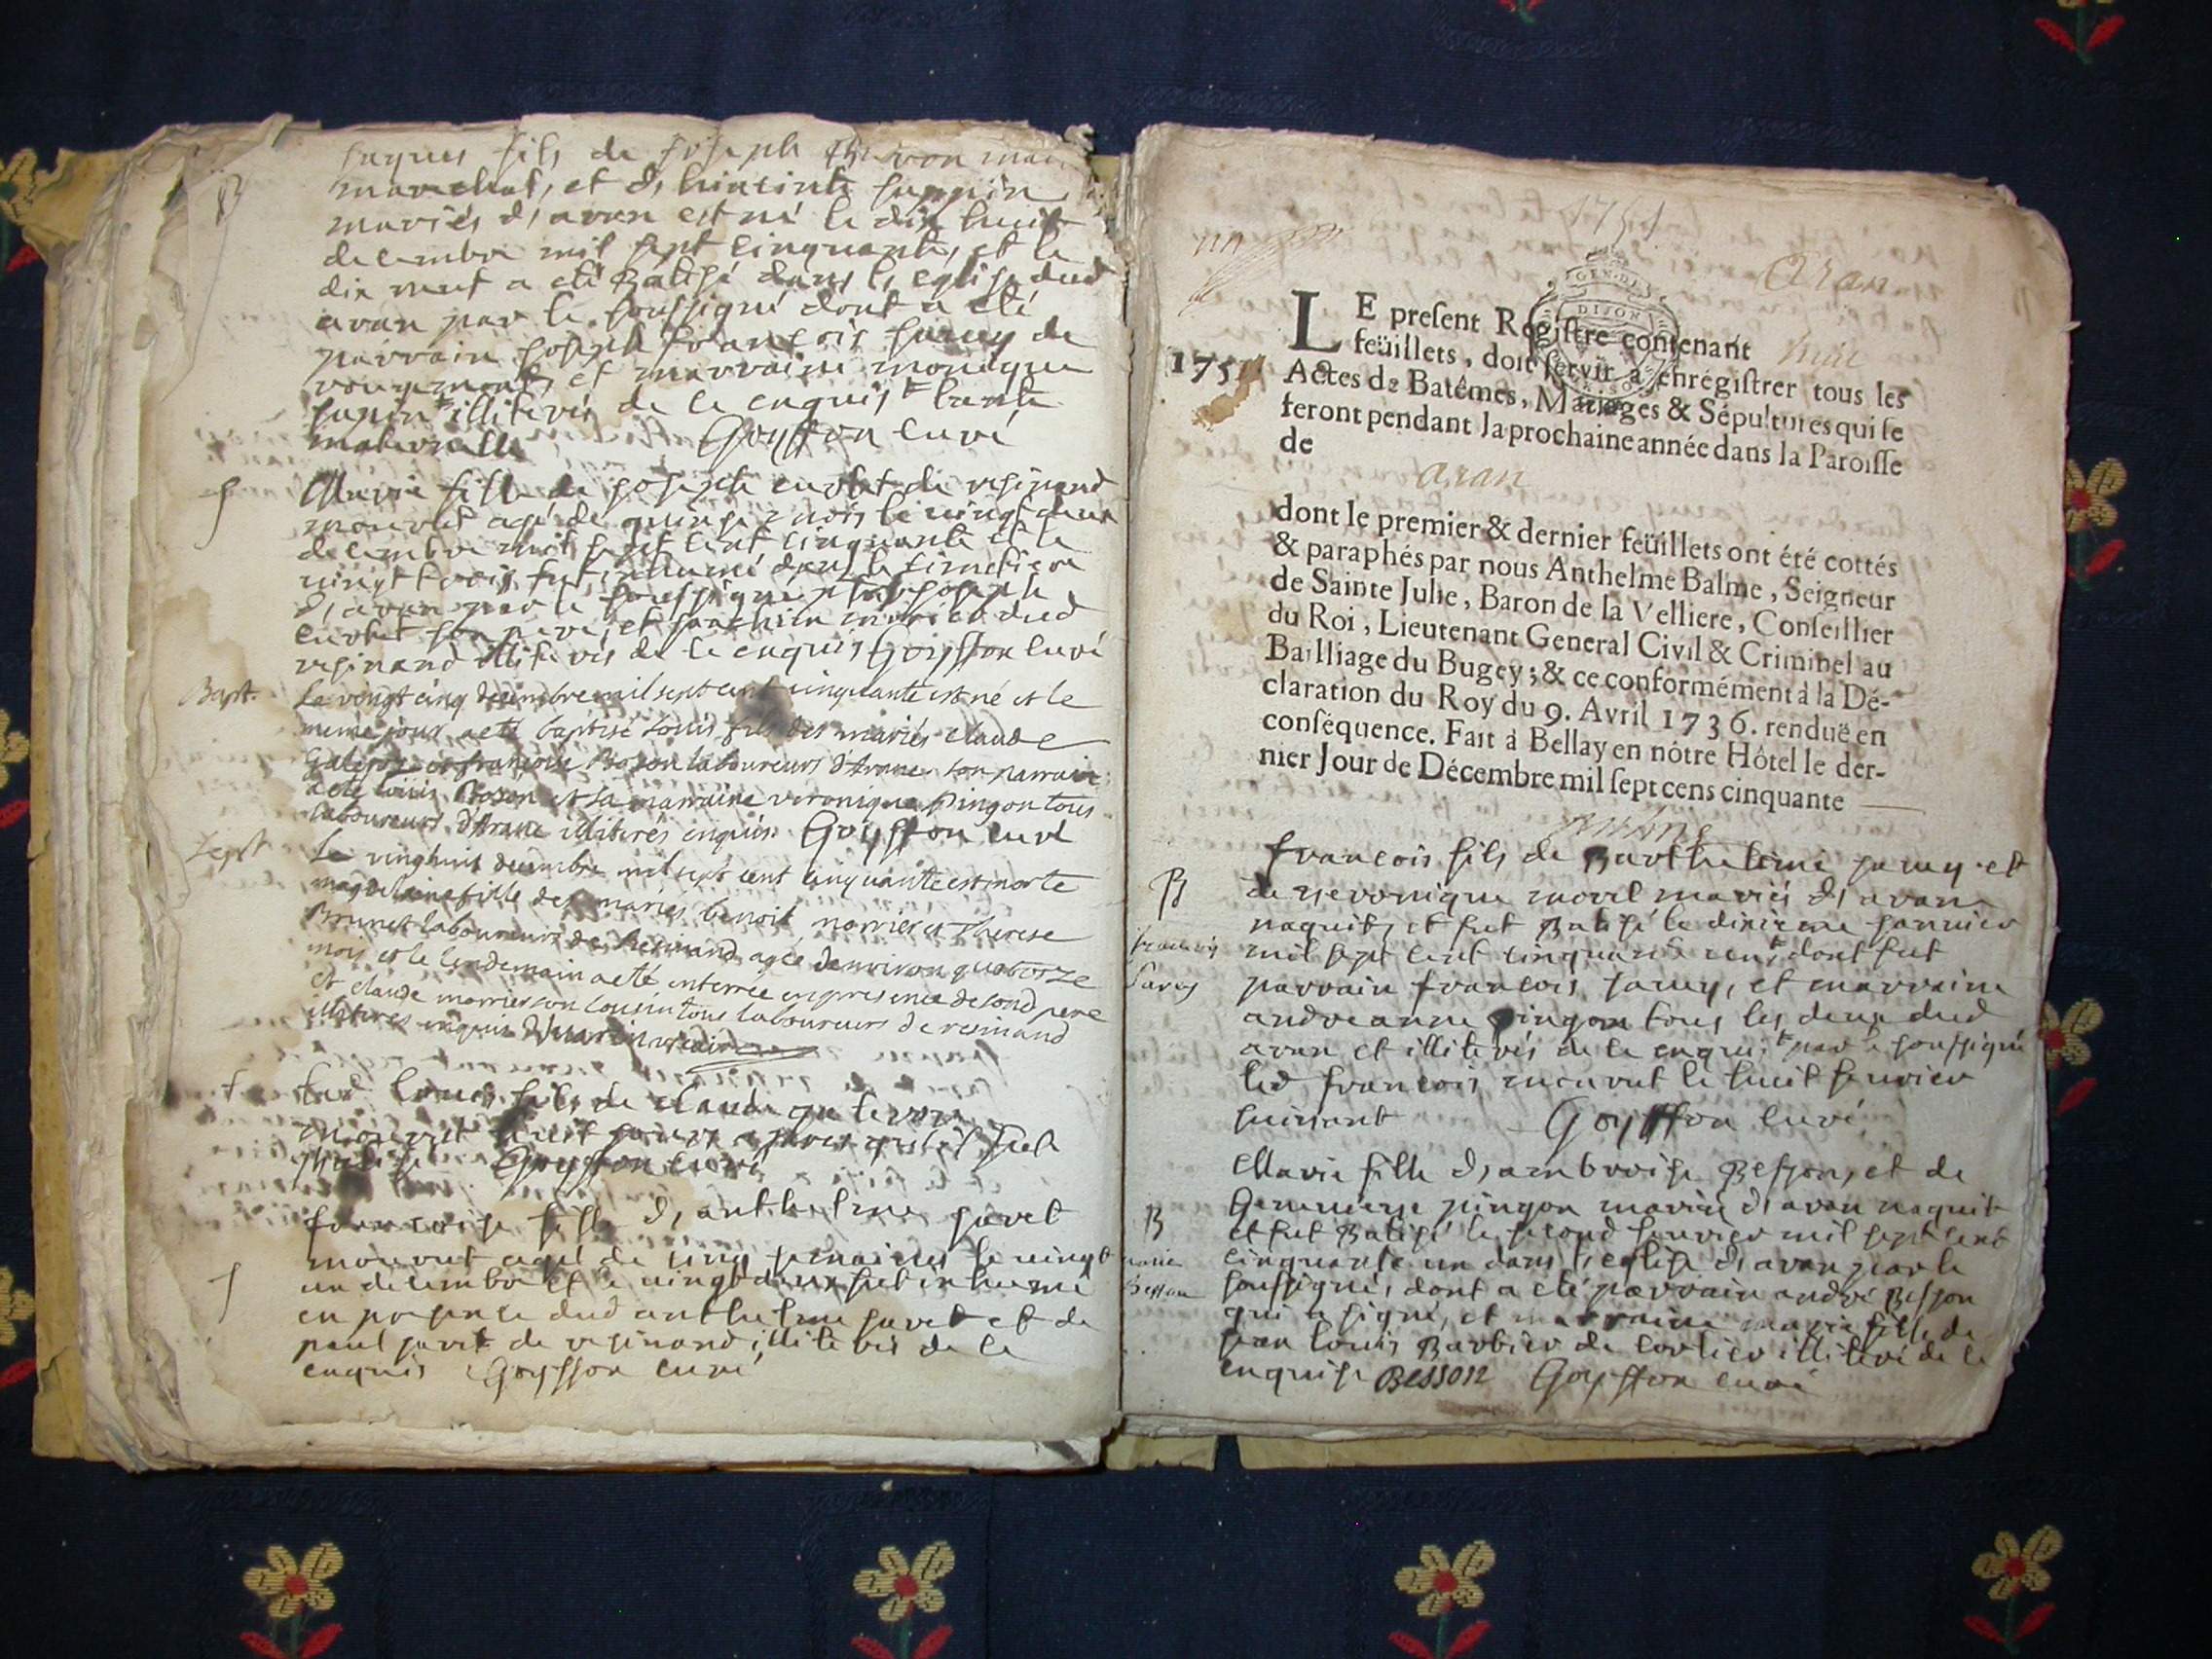 B
jaques fils de joseph
marechal, et d, hiacinte juppin
mariés d, aran est né le dix huit
decembre mil sept cinquante, et le
dix neuf a eté Batisé dans l, eglise dud
aran par le soussigné dont a eté
parrain joseph francois jarcy de
rougemont, et marraine monique
jupin illiterés de ce enquis tante
maternelle Goyffon curé
S
Marie fille de joseph curtet de resinand
mourut agé de quinse mois le vingt deux
decembre mil sept cent cinquante et le
vingt trois fut inhumé dans le simetiere
d, aran par le soussigné joseph
curtet son pere, et dud
resinand illiterés de ce enquis Goyffon curé
Bapt.
Le vingt cinq decembre mil sept cent cinquante est né et le
meme jour a eté baptisé Louis fils des mariés claude
et françoise Bozon laboureurs d'Arane son parrain
a eté louis Bozon et sa marraine veronique Pingon tous
laboureurs d'Arane illiterés enquis Goyffon curé
Sept
Le vingthuit decembre mil sept cent cinquante est morte
magdelaine fille des mariés benoit morrier et Therese
Brunet laboureurs de Resinand agée denviron quatorze
mois et le lendemain a eté enterrée en presence de sond pere
et claude morrier son cousin tous laboureurs de resinand
illiterés enquis
Led Louis fils de claude
mourut huit jours apres qu, il fut
Batisé Goyffon curé
S
francoise fille d, anthelme juret
mourut agé de cinq semaines le vingt
un decembre et le vingt deux fut inhumé
en presence dud anthelme juret et de
paul juret de resinand illiterés de ce
enquis Goyffon curé
1751
aran
GEN·DE
DIJON
LE preſent Regiſtre contenant huit
feüillets, doit ſervir à enrégiſtrer tous les
1751
Actes de Batêmes, Mariages & Sépultures qui ſe
feront pendant la prochaine année dans la Paroiſſe
de aran
dont le premier & dernier feüillets ont été cottés
& paraphés par nous Anthelme Balme, Seigneur
de Sainte Julie, Baron de la Velliere, Conſeillier
du Roi, Lieutenant General Civil & Criminel au
Bailliage du Bugey; & ce conformément à la Dé-
claration du Roy du 9. Avril 1736. renduë en
conſéquence. Fait à Bellay en nôtre Hôtel le der-
nier Jour de Décembre mil ſept cens cinquante
francois fils de Barthelemi jarcy et
B
de veronique morel mariés d, aran
naquit, et fut Batisé le dixieme janvier
francois
mil sept cent cinquante un, dont fut
jarcy
parrain francois jarcy, et marraine
andreanne pingon tous les deux dud
aran et illiterés de ce enquis par le soussigné
led francois mourut le huit fevrier
suivant Goyffon curé
Marie fille d, ambroise Besson, et de
Genevieve pingon mariés d, aran naquit
B
et fut Batisé le second fevrier mil sept cent
marie
cinquante un dans l, eglise d, aran par le
Besson
soussigné, dont a eté parrain andré Besson
qui a signé, et marraine marie fille de
jean louis Barbier de corlier illiteré de ce
enquise BESSON Goyffon curé